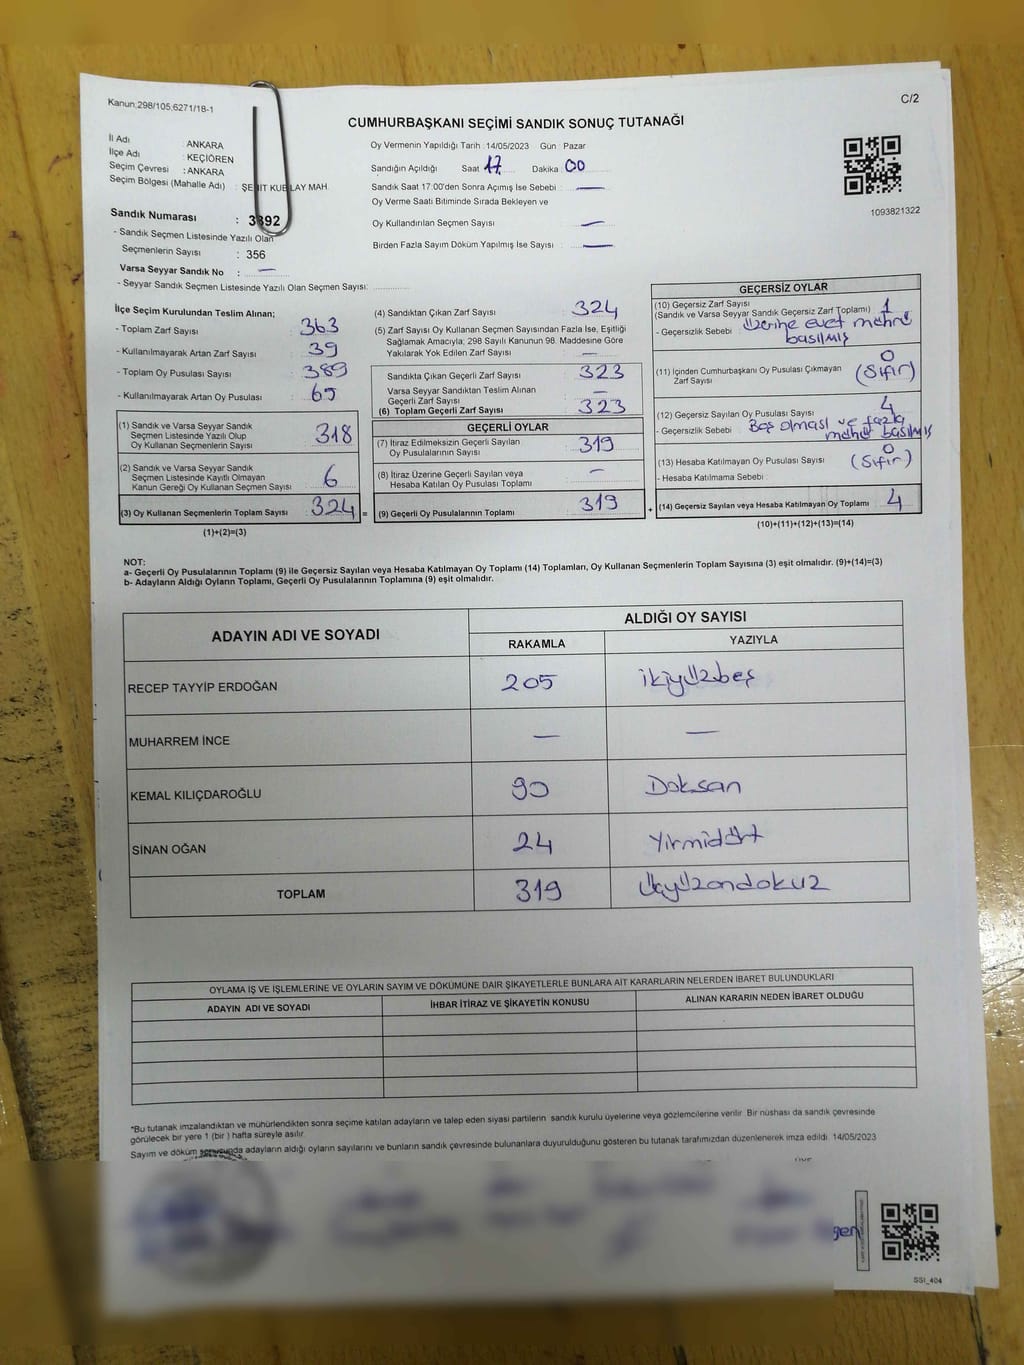 Kanun;298/105;6271/18-1
C/2
CUMHURBAŞKANI SEÇİMİ SANDIK SONUÇ TUTANAĞI
İl Adı : ANKARA
İlçe Adı : KEÇİÖREN
Seçim Çevresi : ANKARA
Seçim Bölgesi (Mahalle Adı) : LAY MAH.
Sandık Numarası : 3392
- Sandık Seçmen Listesinde Yazılı Olan
Seçmenlerin Sayısı : 356
Varsa Seyyar Sandık No : —
- Seyyar Sandık Seçmen Listesinde Yazılı Olan Seçmen Sayısı: ...............
Oy Vermenin Yapıldığı Tarih : 14/05/2023 Gün : Pazar
Sandığın Açıldığı Saat 17 Dakika 00
Sandık Saat 17:00'den Sonra Açımış İse Sebebi : —
Oy Verme Saati Bitiminde Sırada Bekleyen ve
Oy Kullandırılan Seçmen Sayısı : —
Birden Fazla Sayım Döküm Yapılmış İse Sayısı : —
1093821322
İlçe Seçim Kurulundan Teslim Alınan;
- Toplam Zarf Sayısı : 363
- Kullanılmayarak Artan Zarf Sayısı : 39
- Toplam Oy Pusulası Sayısı : 389
- Kullanılmayarak Artan Oy Pusulası : 65
(1) Sandık ve Varsa Seyyar Sandık
Seçmen Listesinde Yazılı Olup
Oy Kullanan Seçmenlerin Sayısı 318
(2) Sandık ve Varsa Seyyar Sandık
Seçmen Listesinde Kayıtlı Olmayan
Kanun Gereği Oy Kullanan Seçmen Sayısı 6
(3) Oy Kullanan Seçmenlerin Toplam Sayısı 324 =
(1)+(2)=(3)
(4) Sandıktan Çıkan Zarf Sayısı : 324
(5) Zarf Sayısı Oy Kullanan Seçmen Sayısından Fazla İse, Eşitliği
Sağlamak Amacıyla; 298 Sayılı Kanunun 98. Maddesine Göre
Yakılarak Yok Edilen Zarf Sayısı : —
Sandıkta Çıkan Geçerli Zarf Sayısı : 323
Varsa Seyyar Sandıktan Teslim Alınan
Geçerli Zarf Sayısı : —
(6) Toplam Geçerli Zarf Sayısı : 323
GEÇERLİ OYLAR
(7) İtiraz Edilmeksizin Geçerli Sayılan
Oy Pusulasının Sayısı : 319
(8) İtiraz Üzerine Geçerli Sayılan veya
Hesaba Katılan Oy Pusulası Toplamı : —
(9) Geçerli Oy Pusulalarının Toplamı 319 +
GEÇERSİZ OYLAR
(10) Geçersiz Zarf Sayısı
(Sandık ve Varsa Seyyar Sandık Geçersiz Zarf Toplamı) : 1
- Geçersizlik Sebebi : Üzerine evet mührü
basılmış
(11) İçinden Cumhurbaşkanı Oy Pusulası Çıkmayan : 0
Zarf Sayısı (Sıfır)
(12) Geçersiz Sayılan Oy Pusulası Sayısı : 4
- Geçersizlik Sebebi : Boş olması ve fazla
mühür basılmış
(13) Hesaba Katılmayan Oy Pusulası Sayısı : 0 (Sıfır)
- Hesaba Katılmama Sebebi :
(14) Geçersiz Sayılan veya Hesaba Katılmayan Oy Toplamı 4
(10)+(11)+(12)+(13)=(14)
NOT:
a- Geçerli Oy Pusulalarının Toplamı (9) ile Geçersiz Sayılan veya Hesaba Katılmayan Oy Toplamı (14) Toplamları, Oy Kullanan Seçmenlerin Toplam Sayısına (3) eşit olmalıdır. (9)+(14)=(3)
b- Adayların Aldığı Oyların Toplamı, Geçerli Oy Pusulalarının Toplamına (9) eşit olmalıdır.
ADAYIN ADI VE SOYADI
ALDIĞI OY SAYISI
RAKAMLA YAZIYLA
RECEP TAYYİP ERDOĞAN 205 ikiyüzbeş
MUHARREM İNCE — —
KEMAL KILIÇDAROĞLU 90 Doksan
SİNAN OĞAN 24 Yirmidört
TOPLAM 319 üçyüzondokuz
OYLAMA İŞ VE İŞLEMLERİNE VE OYLARIN SAYIM VE DÖKÜMÜNE DAİR ŞİKAYETLERLE BUNLARA AİT KARARLARIN NELERDEN İBARET BULUNDUKLARI
ADAYIN ADI VE SOYADI İHBAR İTİRAZ VE ŞİKAYETİN KONUSU ALINAN KARARIN NEDEN İBARET OLDUĞU
*Bu tutanak imzalandıktan ve mühürlendikten sonra seçime katılan adayların ve talep eden siyasi partilerin sandık kurulu üyelerine veya gözlemcilerine verilir. Bir nüshası da sandık çevresinde
görülecek bir yere 1 (bir ) hafta süreyle asılır.
Sayım ve döküm sonucunda adayların aldığı oyların sayılarını ve bunların sandık çevresinde bulunanlara duyurulduğunu gösteren bu tutanak tarafımızdan düzenlenerek imza edildi. 14/05/2023
SSI_404